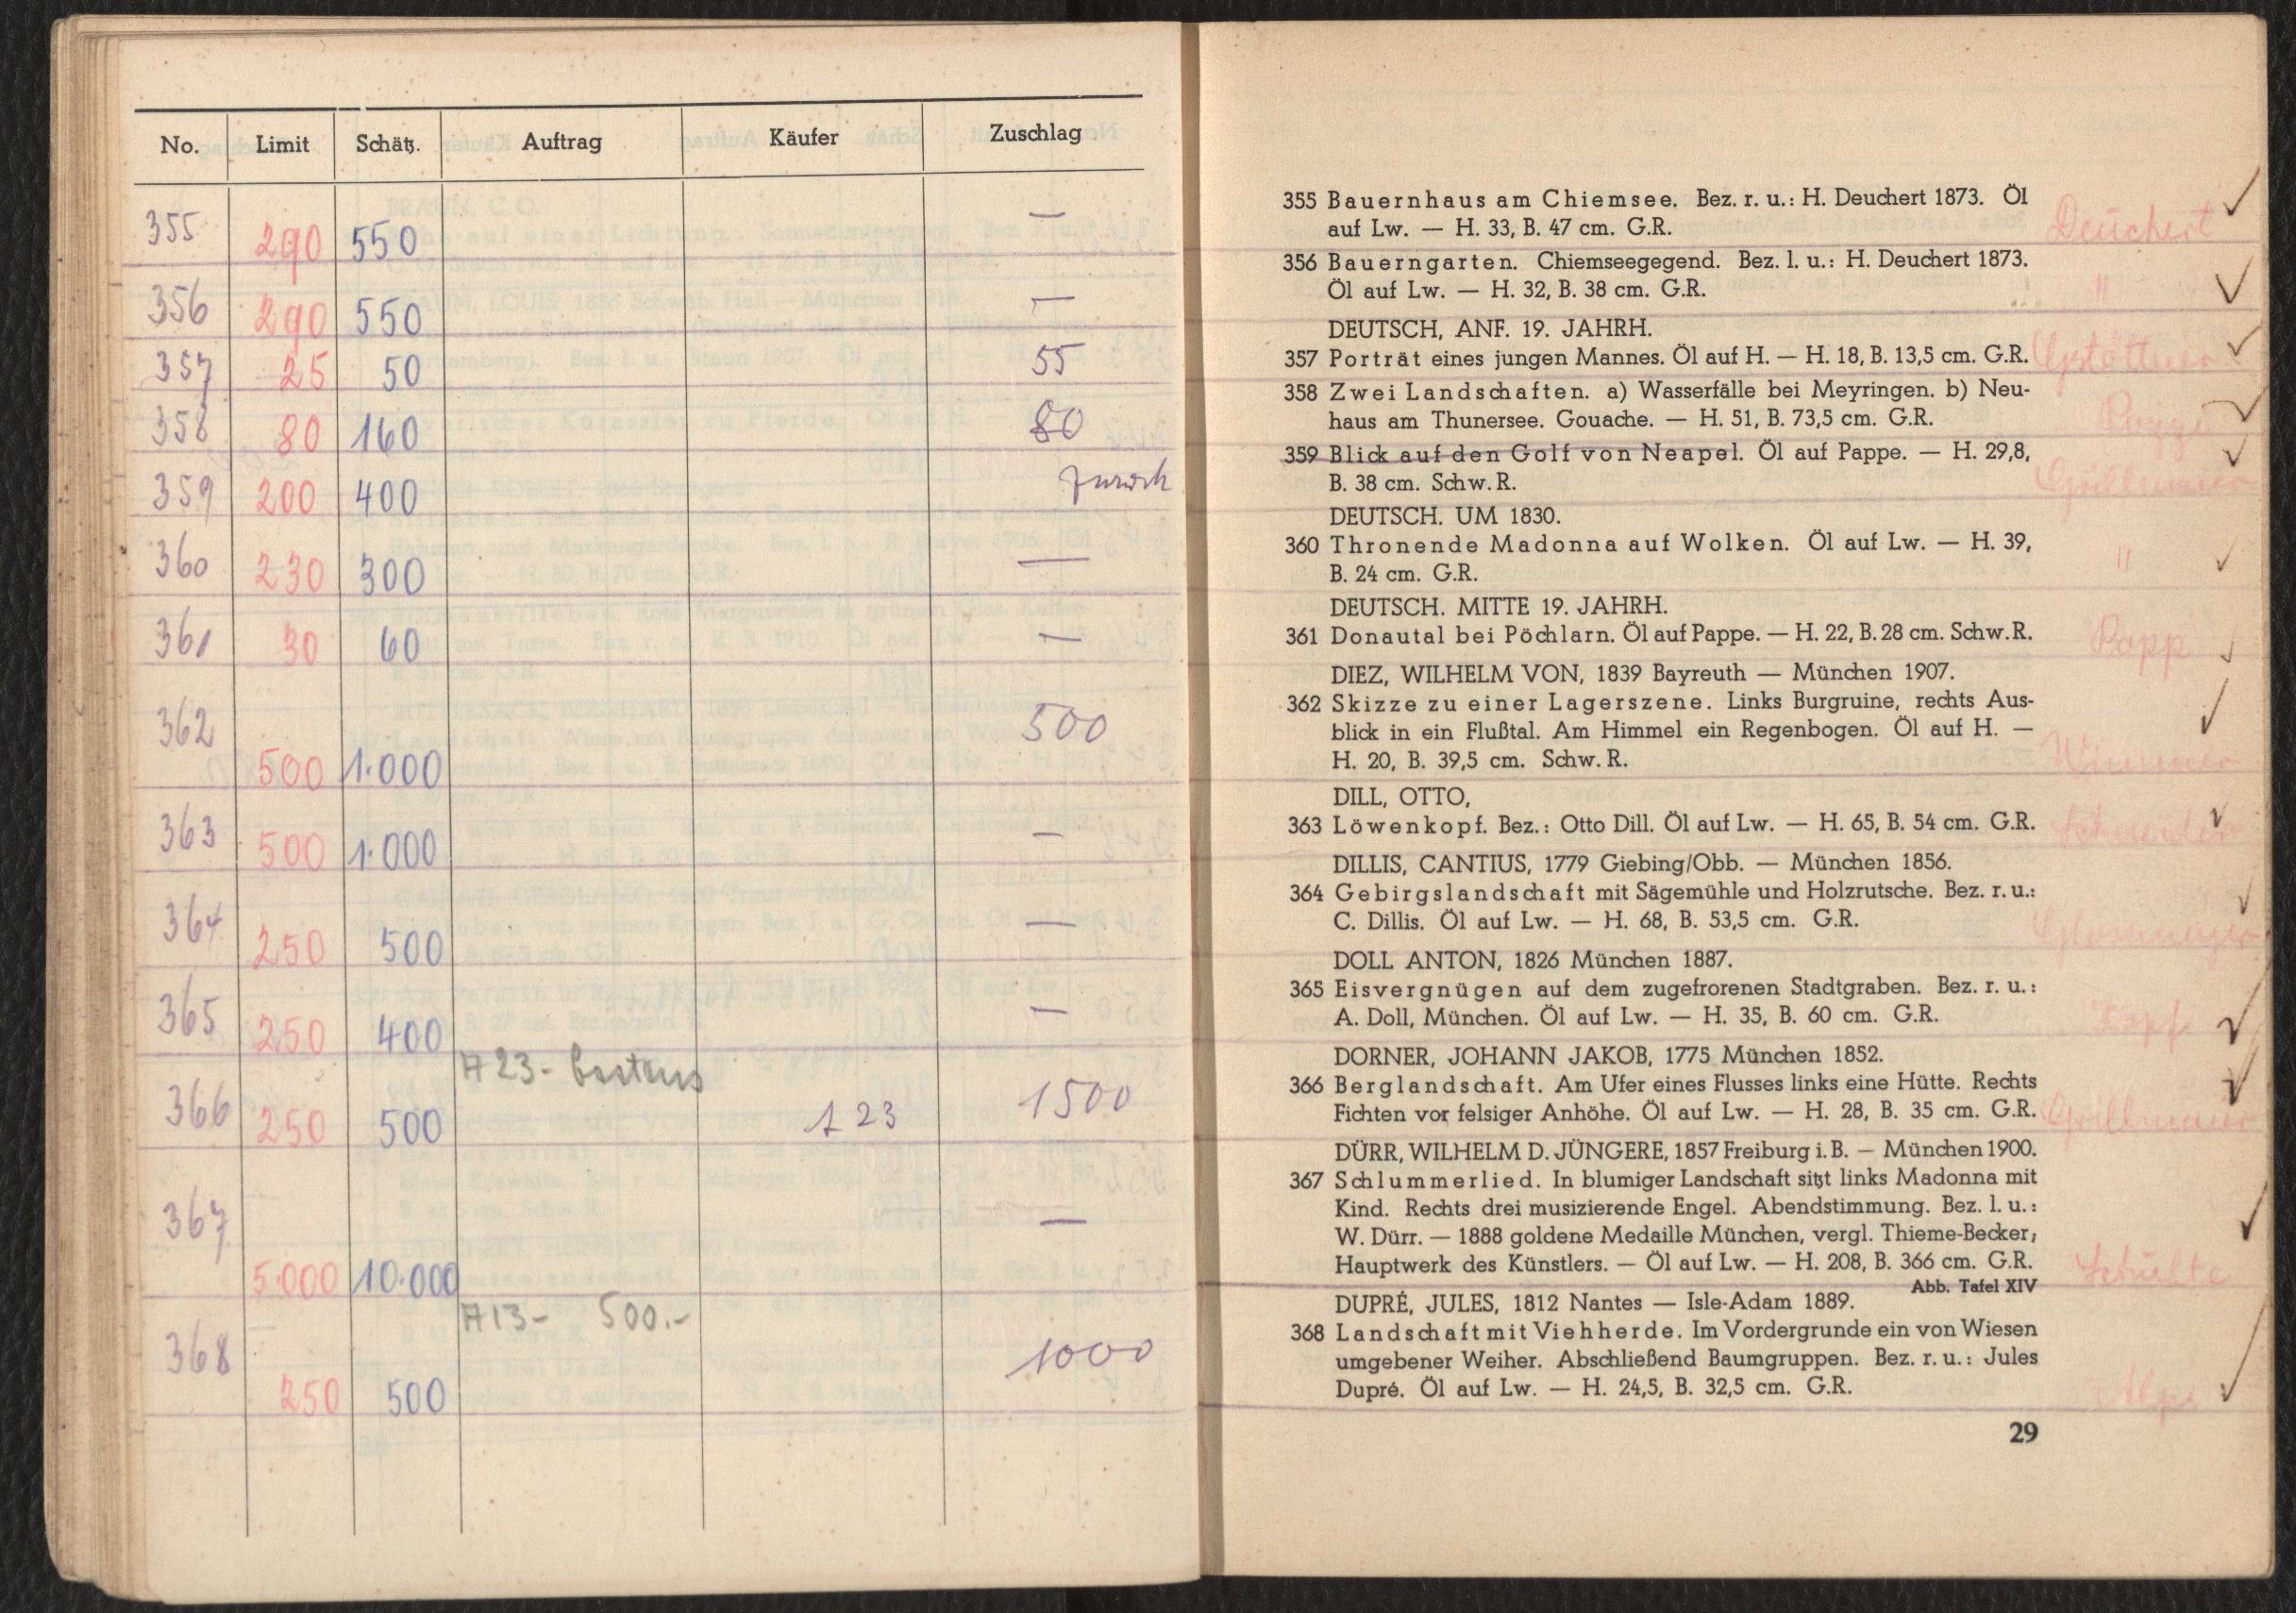 No. Limit Schätz. Auftrag Käufer Zuschlag
355 290 550 —
356 290 550 —
357 25 50 55
358 80 160 80
359 200 400 zurück
360 230 300 —
361 30 60 —
362 500 1.000 500
363 500 1.000 —
364 250 500 —
365 250 400 —
A 23 - bestens
366 250 500 A 23 1500
367 5.000 10.000 —
A 13 - 500.-
368 250 500 1000
355 Bauernhaus am Chiemsee. Bez. r. u.: H. Deuchert 1873. Öl
auf Lw. — H. 33, B. 47 cm. G.R. Deuchert ✓
356 Bauerngarten. Chiemseegegend. Bez. l. u.: H. Deuchert 1873.
Öl auf Lw. — H. 32, B. 38 cm. G.R. " ✓
DEUTSCH, ANF. 19. JAHRH.
357 Porträt eines jungen Mannes. Öl auf H. — H. 18, B. 13,5 cm. G.R. Gstöttner ✓
358 Zwei Landschaften. a) Wasserfälle bei Meyringen. b) Neu-
haus am Thunersee. Gouache. — H. 51, B. 73,5 cm. G.R. ✓
359 Blick auf den Golf von Neapel. Öl auf Pappe. — H. 29,8, ✓
B. 38 cm. Schw. R.
DEUTSCH. UM 1830.
360 Thronende Madonna auf Wolken. Öl auf Lw. — H. 39,
B. 24 cm. G.R. " ✓
DEUTSCH. MITTE 19. JAHRH.
361 Donautal bei Pöchlarn. Öl auf Pappe. — H. 22, B. 28 cm. Schw. R. Popp ✓
DIEZ, WILHELM VON, 1839 Bayreuth — München 1907.
362 Skizze zu einer Lagerszene. Links Burgruine, rechts Aus-
blick in ein Flußtal. Am Himmel ein Regenbogen. Öl auf H. — ✓
H. 20, B. 39,5 cm. Schw. R. Wimmer
DILL, OTTO,
363 Löwenkopf. Bez.: Otto Dill. Öl auf Lw. — H. 65, B. 54 cm. G.R. Schneider ✓
DILLIS, CANTIUS, 1779 Giebing/Obb. — München 1856.
364 Gebirgslandschaft mit Sägemühle und Holzrutsche. Bez. r. u.: ✓
C. Dillis. Öl auf Lw. — H. 68, B. 53,5 cm. G.R.
DOLL ANTON, 1826 München 1887.
365 Eisvergnügen auf dem zugefrorenen Stadtgraben. Bez. r. u.:
A. Doll, München. Öl auf Lw. — H. 35, B. 60 cm. G.R. ✓
DORNER, JOHANN JAKOB, 1775 München 1852.
366 Berglandschaft. Am Ufer eines Flusses links eine Hütte. Rechts ✓
Fichten vor felsiger Anhöhe. Öl auf Lw. — H. 28, B. 35 cm. G.R. Grillmaier
DÜRR, WILHELM D. JÜNGERE, 1857 Freiburg i. B. — München 1900.
367 Schlummerlied. In blumiger Landschaft sitzt links Madonna mit
Kind. Rechts drei musizierende Engel. Abendstimmung. Bez. l. u.: ✓
W. Dürr. — 1888 goldene Medaille München, vergl. Thieme-Becker,
Hauptwerk des Künstlers. — Öl auf Lw. — H. 208, B. 366 cm. G.R. Schulte
Abb. Tafel XIV
DUPRÉ, JULES, 1812 Nantes — Isle-Adam 1889.
368 Landschaft mit Viehherde. Im Vordergrunde ein von Wiesen
umgebener Weiher. Abschließend Baumgruppen. Bez. r. u.: Jules
Dupré. Öl auf Lw. — H. 24,5, B. 32,5 cm. G.R. ✓
29